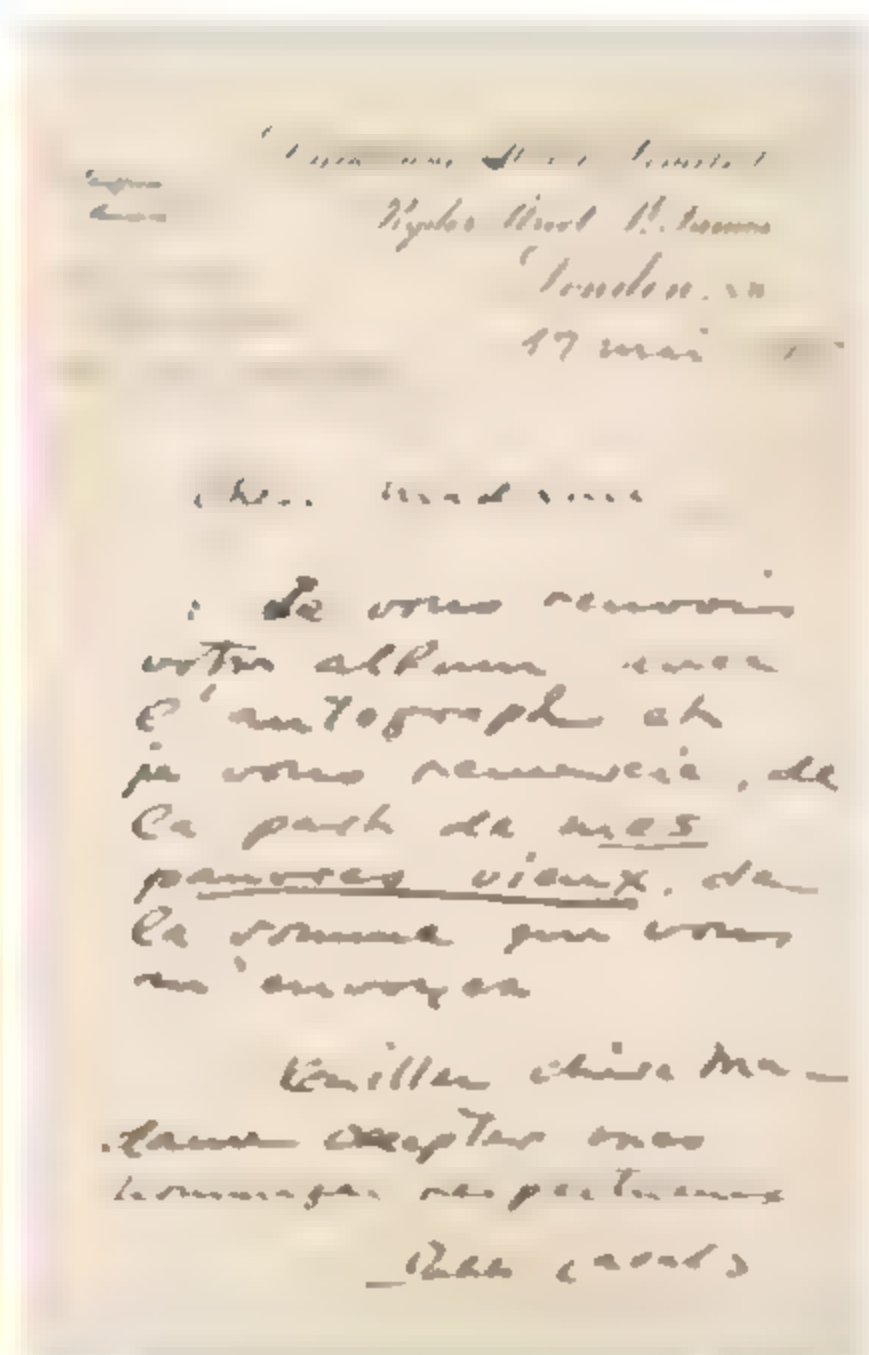 London.
17 mai
Chère Madame
Je vous renvoie
votre album avec
l'autographe et
je vous remercie, de
la part de mes
pauvres vieux, de
la somme que vous
m'envoyez
Veuillez chère Ma-
dame accepter mes
hommages respectueux
Pablo Casals